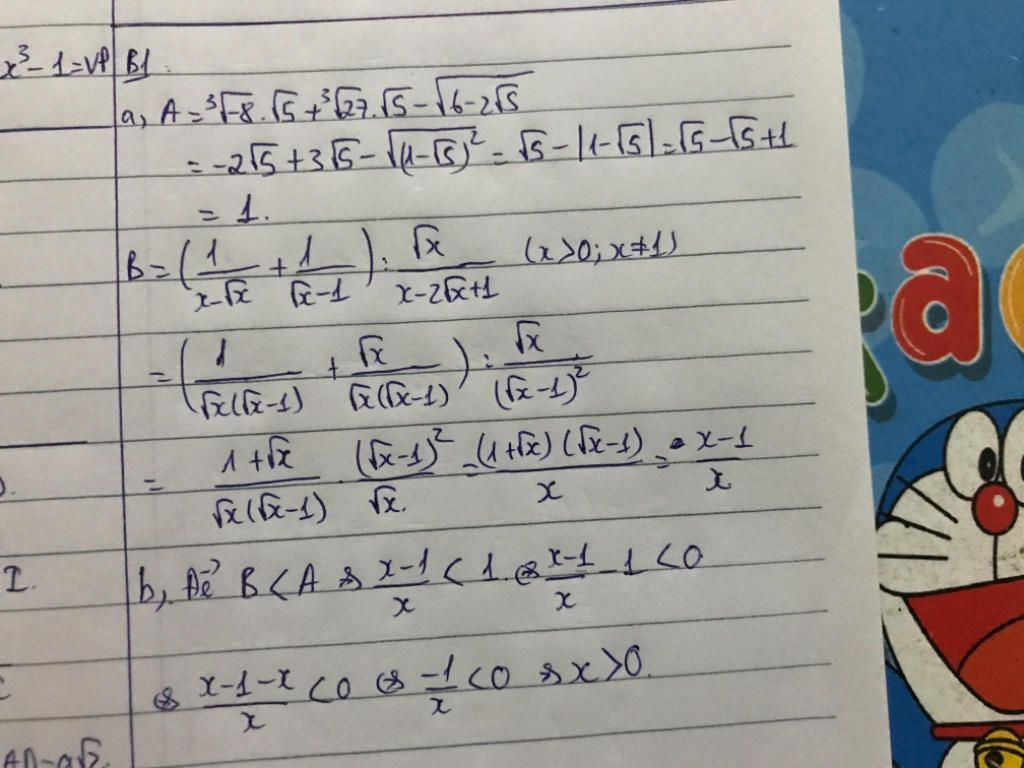 x³ - 1 = VP
B1
a, A = ³√-8 . √5 + ³√27 . √5 - √(6 - 2√5)
= -2√5 + 3√5 - √((1-√5)²) = √5 - |1-√5| = √5 - √5 + 1
= 1.
B = (1/(x-√x) + 1/(√x-1)) : √x/(x-2√x+1) (x>0; x≠1)
= (1/(√x(√x-1)) + √x/(√x(√x-1))) : √x/(√x-1)²
= (1+√x)/(√x(√x-1)) . (√x-1)²/√x. = (1+√x)(√x-1)/x = (x-1)/x
b, Để B < A ⇔ (x-1)/x < 1 ⇔ (x-1)/x - 1 < 0
⇔ (x-1-x)/x < 0 ⇔ -1/x < 0 ⇔ x > 0.
I.
a